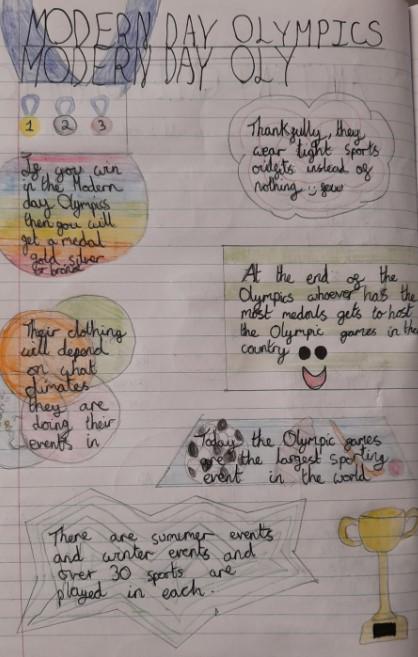 MODERN DAY OLYMPICS
MODERN DAY OLY
1 2 3
If you win
in the Modern
day Olympics
then you will
get a medal
gold silver
or bronze
Thankfully, they
wear tight sports
outfits instead of
nothing
At the end of the
Olympics whoever has the
most medals gets to host
the Olympic games in their
country
Their clothing
will depend
on what
climates
they are
doing their
events in
Today the Olympic games
are the largest sporting
event in the world
There are summer events
and winter events and
over 30 sports are
played in each.